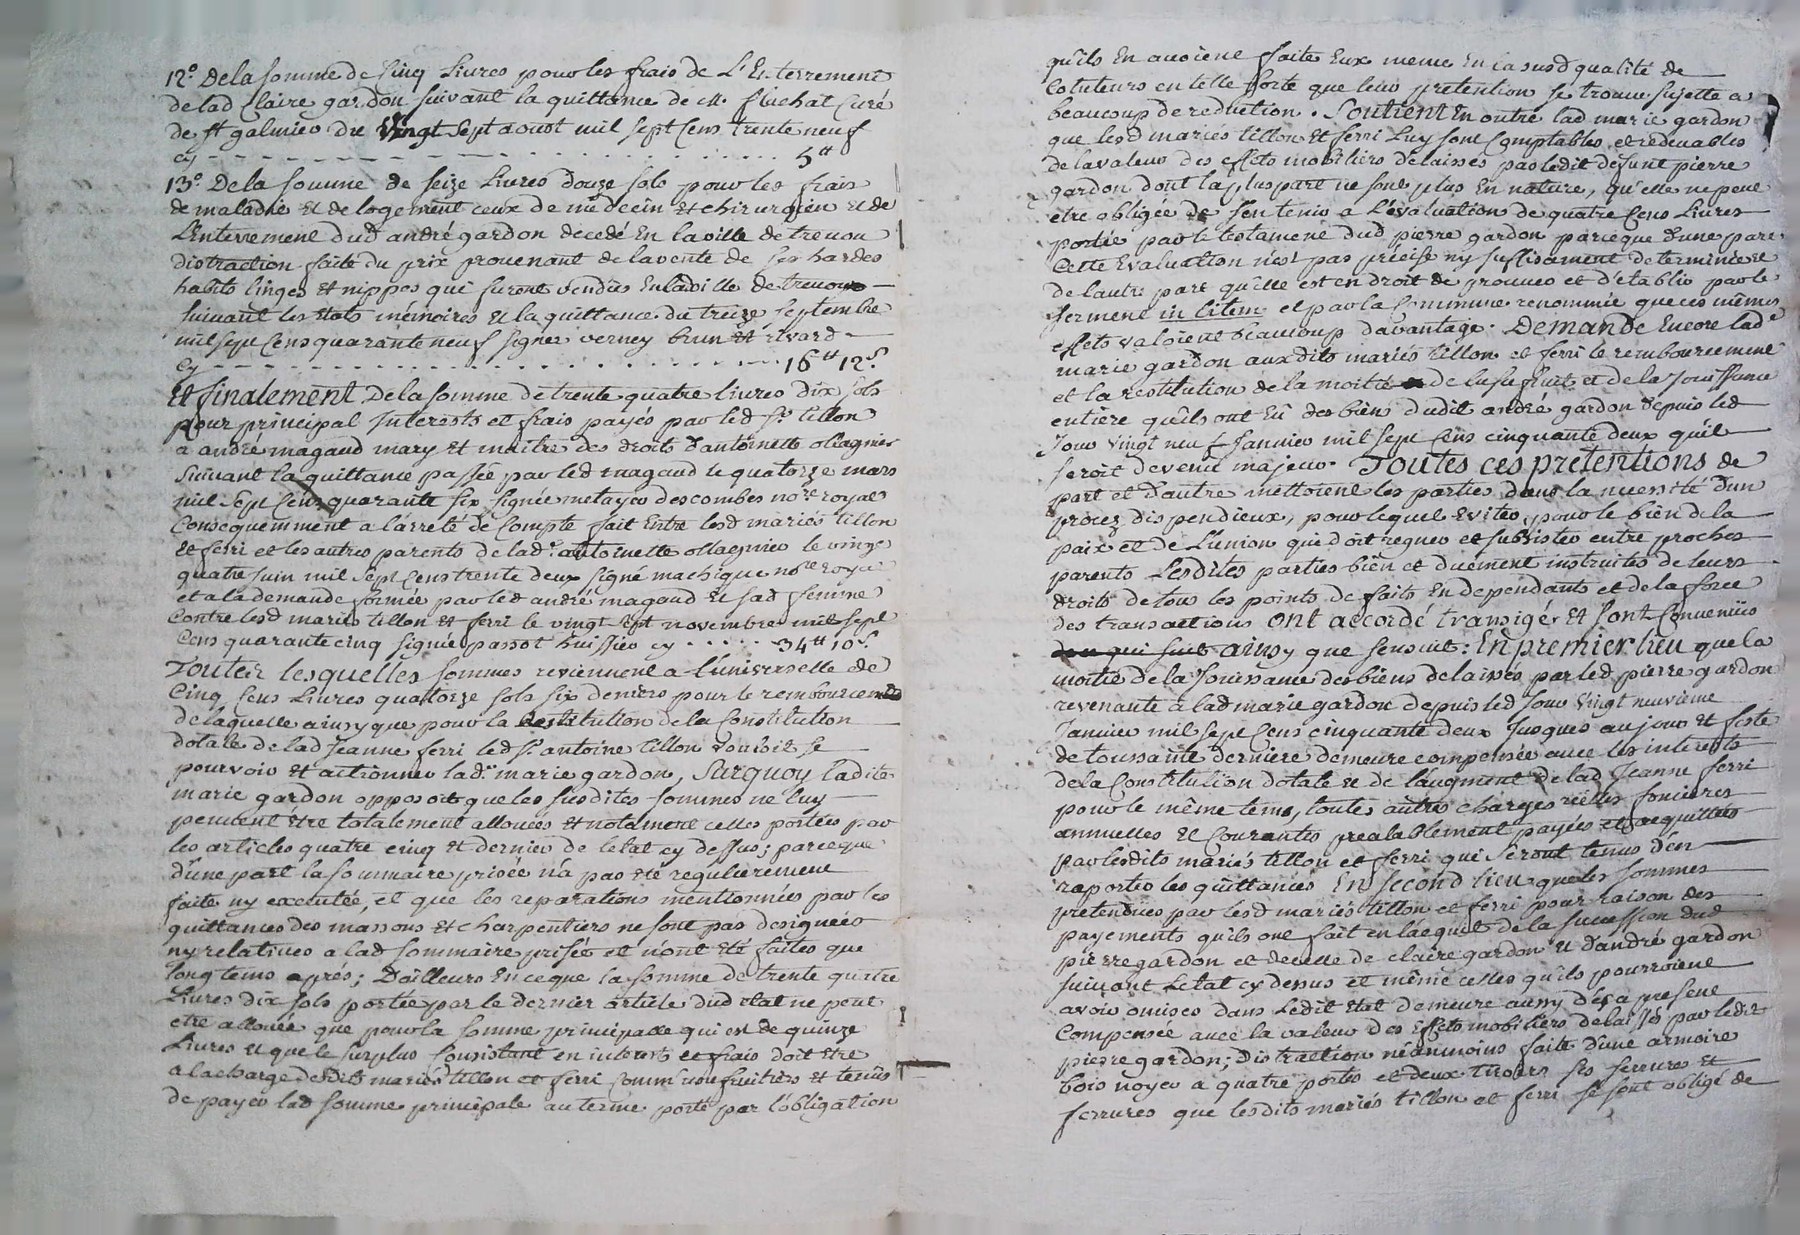 12.° Dela somme de Cinq Livres pour les frais de L'Enterrement
delad Claire gardon suivant la quittance de M. fluchat Curé
de St galmier du Vingt Sept aoust mil sept Cens trente neuf
cy - - - - - - - - - - - - - - - 5tt
13.° Dela somme de seize Livres douze sols pour les frais
de maladie et de logement ceux de médecin et chirurgien et de
L'enterrement dud andré gardon decedé en la ville de trevou
distraction faite du prix provenant de la vente de ses hardes
habits linges et nippes qui furent vendus En la ville de trevoux
suivant les états mémoires et la quittance du treize septembre
mil sept Cens quarante neuf signés verney brun et rivard
Cy - - - - - - - - - - - - - - - 16tt 12s
Et finalement Dela somme de trente quatre livres dix sols
pour principal Interests et frais payés par led sr. tillon
a andré magaud mary et maitre des droits d'antoinette ollagnier
suivant la quittance passée par led magaud le quatorze mars
mil Sept Cens quarante six signée metayer descombes nore royal
Consequemment a l'arreté de Compte fait Entre lesd mariés tillon
et ferri et les autres parents de lad.e antoinette ollagnier le vingt
quatre juin mil Sept Cens trente deux signé machique nore royal
et a la demande formée par led andré magaud et sad femme
Contre lesd mariés tillon et ferri le vingt sept novembre mil sept
Cens quarante cinq signée passot huissier cy - - - - 34tt 10s
Toutes lesquelles sommes reviennent a l'universelle de
Cinq Cens Livres quatorze sols six deniers pour le remboursement
de laquelle ainsy que pour la restitution de la Constitution
dotale de lad Jeanne ferri led sr antoine tillon vouloit se
pourvoir et actionner lad.e marie gardon, Surquoy ladite
marie gardon opposoit que les susdites sommes ne luy
peuvent etre totalement allouées et notament celles portées par
les articles quatre cinq et dernier de letat cy dessus; parceque
d'une part la sommaire prisée n'a pas été regulierement
faite ny executée, et que les reparations mentionnées par les
quittances des massons et charpentiers ne sont pas designées
ny relatives a lad sommaire prisée et n'ont été faites que
longtems après; D'ailleurs en ceque la somme de trente quatre
Livres dix sols portée par le dernier article dud etat ne peut
etre allouée que pour la somme principalle qui est de quinze
Livres et que le surplus Consistant en interests et frais doit etre
a la charge desdits mariés tillon et ferri comm' usufruitiers et tenus
de payer lad somme principale au terme porté par l'obligation
qu'ils En avoient faite Eux meme En la susd qualité de
Cotuteurs en telle sorte que leur pretention se trouve sujette a
beaucoup de reduction. Soutient En outre lad marie gardon
que lesd mariés tillon et ferri Luy sont Comptables et redevables
de la valeur des effets mobiliers delaissés par ledit defunt pierre
gardon dont la plus part ne sont plus En nature, qu'elle ne peut
etre obligée de s'en tenir a L'évaluation de quatre Cens Livres
portée par le testament dud pierre gardon parceque d'une part
Cette Evaluation n'est pas précise ny suffisament determinée et
de lautre part qu'elle est en droit de prouver et d'établir par le
serment in litem et par la Commune renommée que ces mêmes
effets valoient beaucoup davantage. Demande Encore lade
marie gardon auxdits mariés tillon et ferri le remboursement
et la restitution de la moitié de lusufruit et de la Jouissance
entière qu'ils ont Eû des biens dudit andré gardon depuis led
Jour vingt neuf Janvier mil sept Cens cinquante deux qu'il
seroit devenu majeur. Toutes ces pretentions de
part et d'autre mettoient les parties dans la necessité d'un
procez dispendieux, pour lequel Eviter, pour le bien de la
paix et de L'union qui doit regner et subsister entre proches
parents Lesdites parties bien et duement instruites de leurs
droits de tous les points de faits En dependants et de la force
des transactions Ont accordé transigé et sont Convenües
ainsy que sensuit: En premier lieu que la
moitié de la Jouissance des biens delaissés par led pierre gardon
revenante a lad marie gardon depuis led Jour Vingt neuvieme
Janvier mil sept Cens cinquante deux Jusques au jour et feste
de toussaints derniere demeure compensée avec les interests
de la Constitution dotale et de l'augment de lad Jeanne ferri
pour le même tems, toutes autres charges réelles foncieres
annuelles et Courantes prealablement payées et acquittées
par lesdits mariés tillon et ferri qui seront tenus d'en
raporter les quittances En second lieu que les sommes
pretendües par lesd mariés tillon et ferri pour raison des
payements qu'ils ont fait en l'acquit de la succession dud
pierre gardon et de celle de claire gardon et d'andré gardon
suivant Letat cy dessus et même celles qu'ils pourroient
avoir omises dans Ledit Etat demeure aussy dés a present
Compensée avec la valeur des Effets mobiliers delaissés par ledit
pierre gardon; distraction néanmoins faite d'une armoire
bois noyer a quatre portes et deux tiroirs ses serrures et
ferrures que lesdits mariés tillon et ferri se sont obligé de